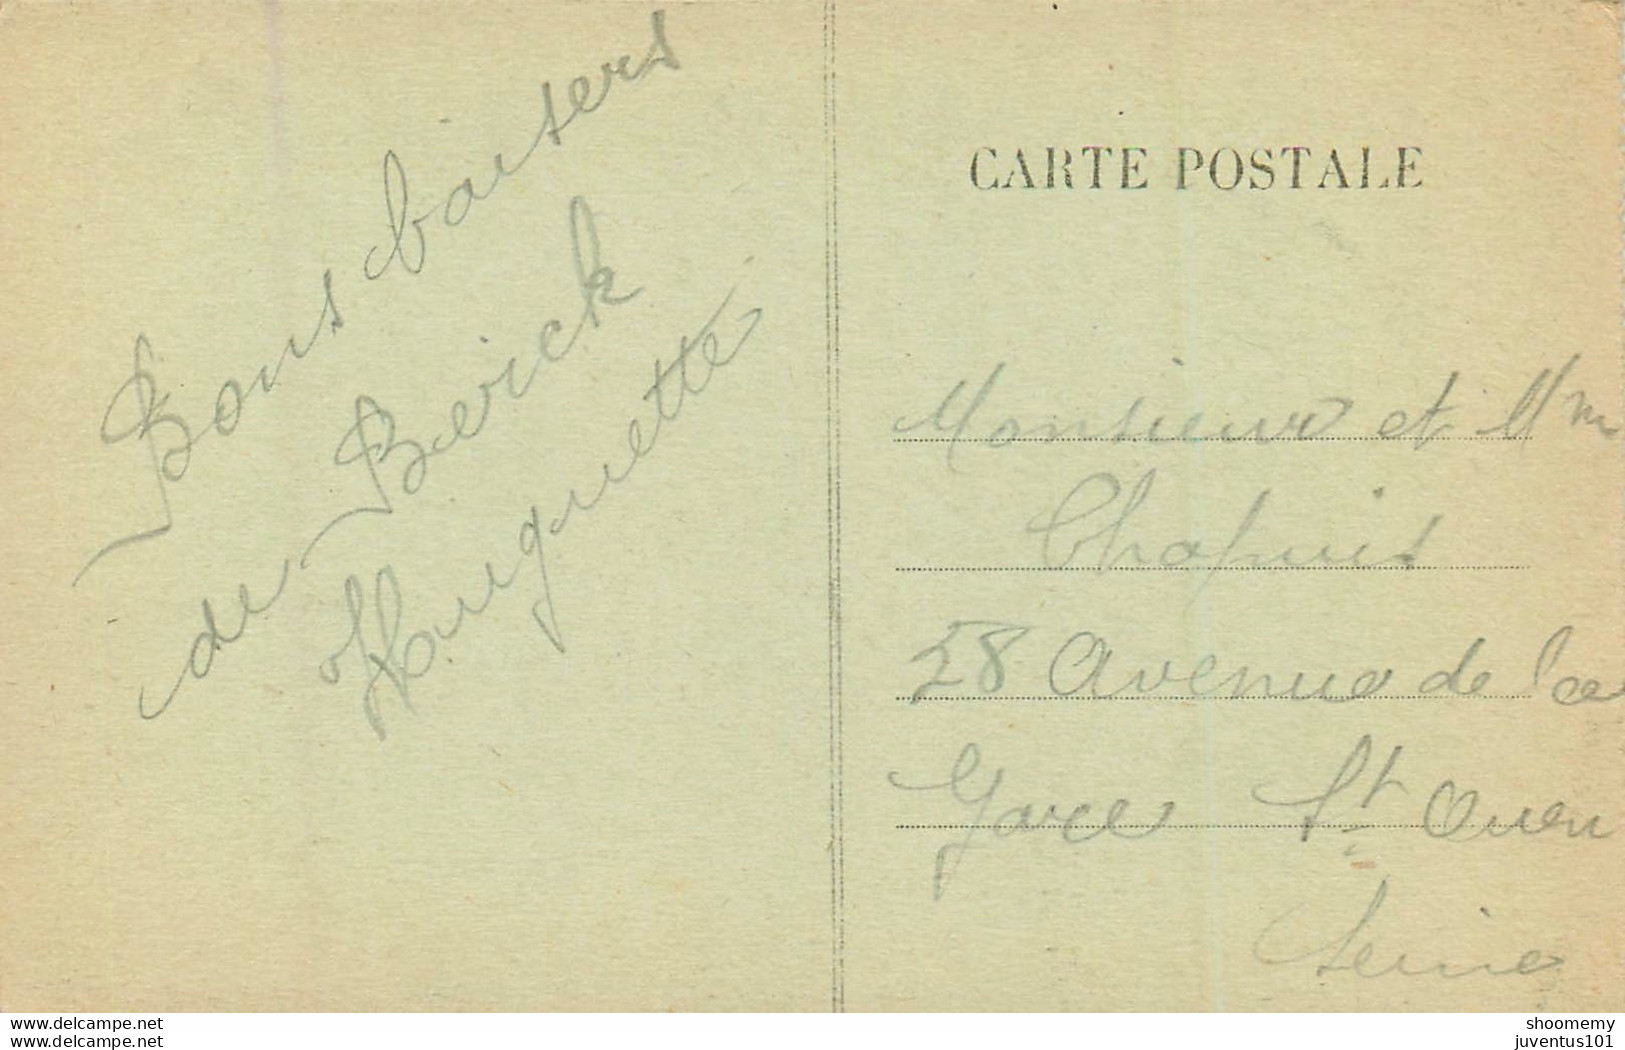 Bons baisers
de Berick
Huguette
CARTE POSTALE
Monsieur et Mme
Chapuis
58 Avenue de la
Gare St Ouen
Seine
www.delcampe.net
www.delcampe.net
shoomemy
juventus101